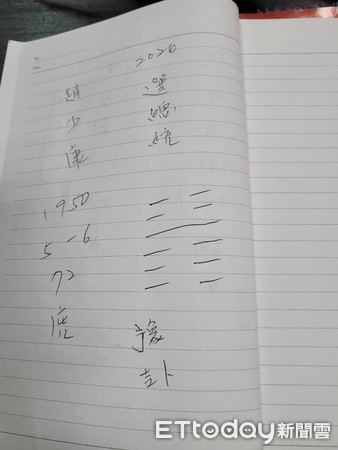 選總統
豫卦
趙少康
1950
5-6
72
虎
ETtoday新聞雲